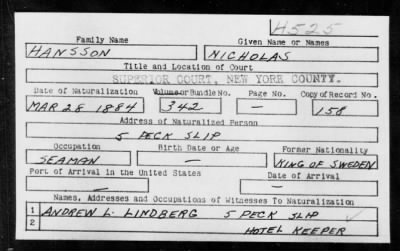 H525
Family Name Given Name or Names
HANSSON NICHOLAS
Title and Location of Court
SUPERIOR COURT, NEW YORK COUNTY.
Date of Naturalization Volume or Bundle No. Page No. Copy of Record No.
MAR 28 1884 342 — 158
Address of Naturalized Person
5 PECK SLIP
Occupation Birth Date or Age Former Nationality
SEAMAN — KING OF SWEDEN
Port of Arrival in the United States Date of Arrival
— —
Names, Addresses and Occupations of Witnesses To Naturalization
1 ANDREW L. LINDBERG 5 PECK SLIP
2 HOTEL KEEPER